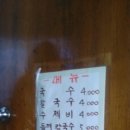 - 메 뉴 -
국 수 4,000
칼 국 수 4,000
수 제 비 4,000
들깨 칼국수 5,000